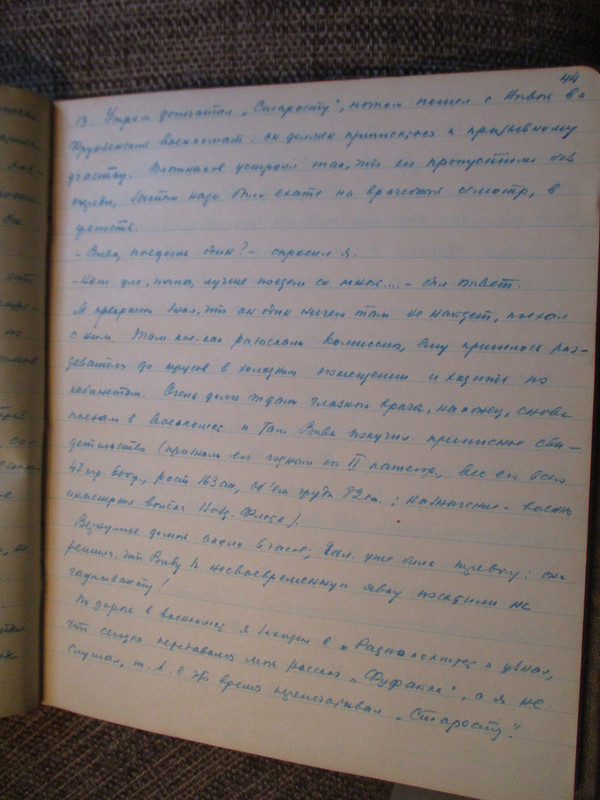 44
13. Утром допечатал „Старосту“, потом пошел с Вивой в
Фрунзенский военкомат: он должен приписаться к призывному
участку. Плотников устроил так, что его пропустили без
очереди, затем надо было ехать на врачебный осмотр, в
крепость.
– Вива, поедешь один? – спросил я.
– Нет уж, папа, лучше поедем со мной.... – был ответ.
Я прекрасно знал, что он один ничего там не найдет, поехал
с ним. Там кое-как разыскали комиссию, ему пришлось раз-
деваться до трусов в холодном помещении и ходить по
кабинетам. Очень долго ждали глазного врача, наконец, снова
поехали в военкомат и там Вива получил приписное сви-
детельство (признали его годным по II категор, вес его всего
47 кгр. 600 гр, рост 163 см, об'ем груди 82 см.; назначение – военно
инженерные войска Возд. Флота).
Вернулись домой около 6 часов; Галя уже была в тревоге: она
решила, что Виву за несвоевременную явку посадили на
гауптвахту!
По дороге в военкомат я заходил в „Радиокомитет“ и узнал,
что сегодня передавался мой рассказ „Фуфайка“, а я не
слушал, т. к. в это время перепечатывал „Старосту“.